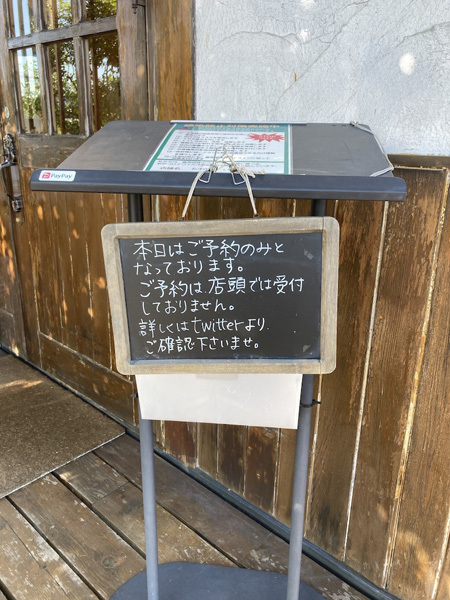 PayPay
本日はご予約のみと
なっております。
ご予約は、店頭では受付
しておりません。
詳しくはtwitterより、
ご確認下さいませ。